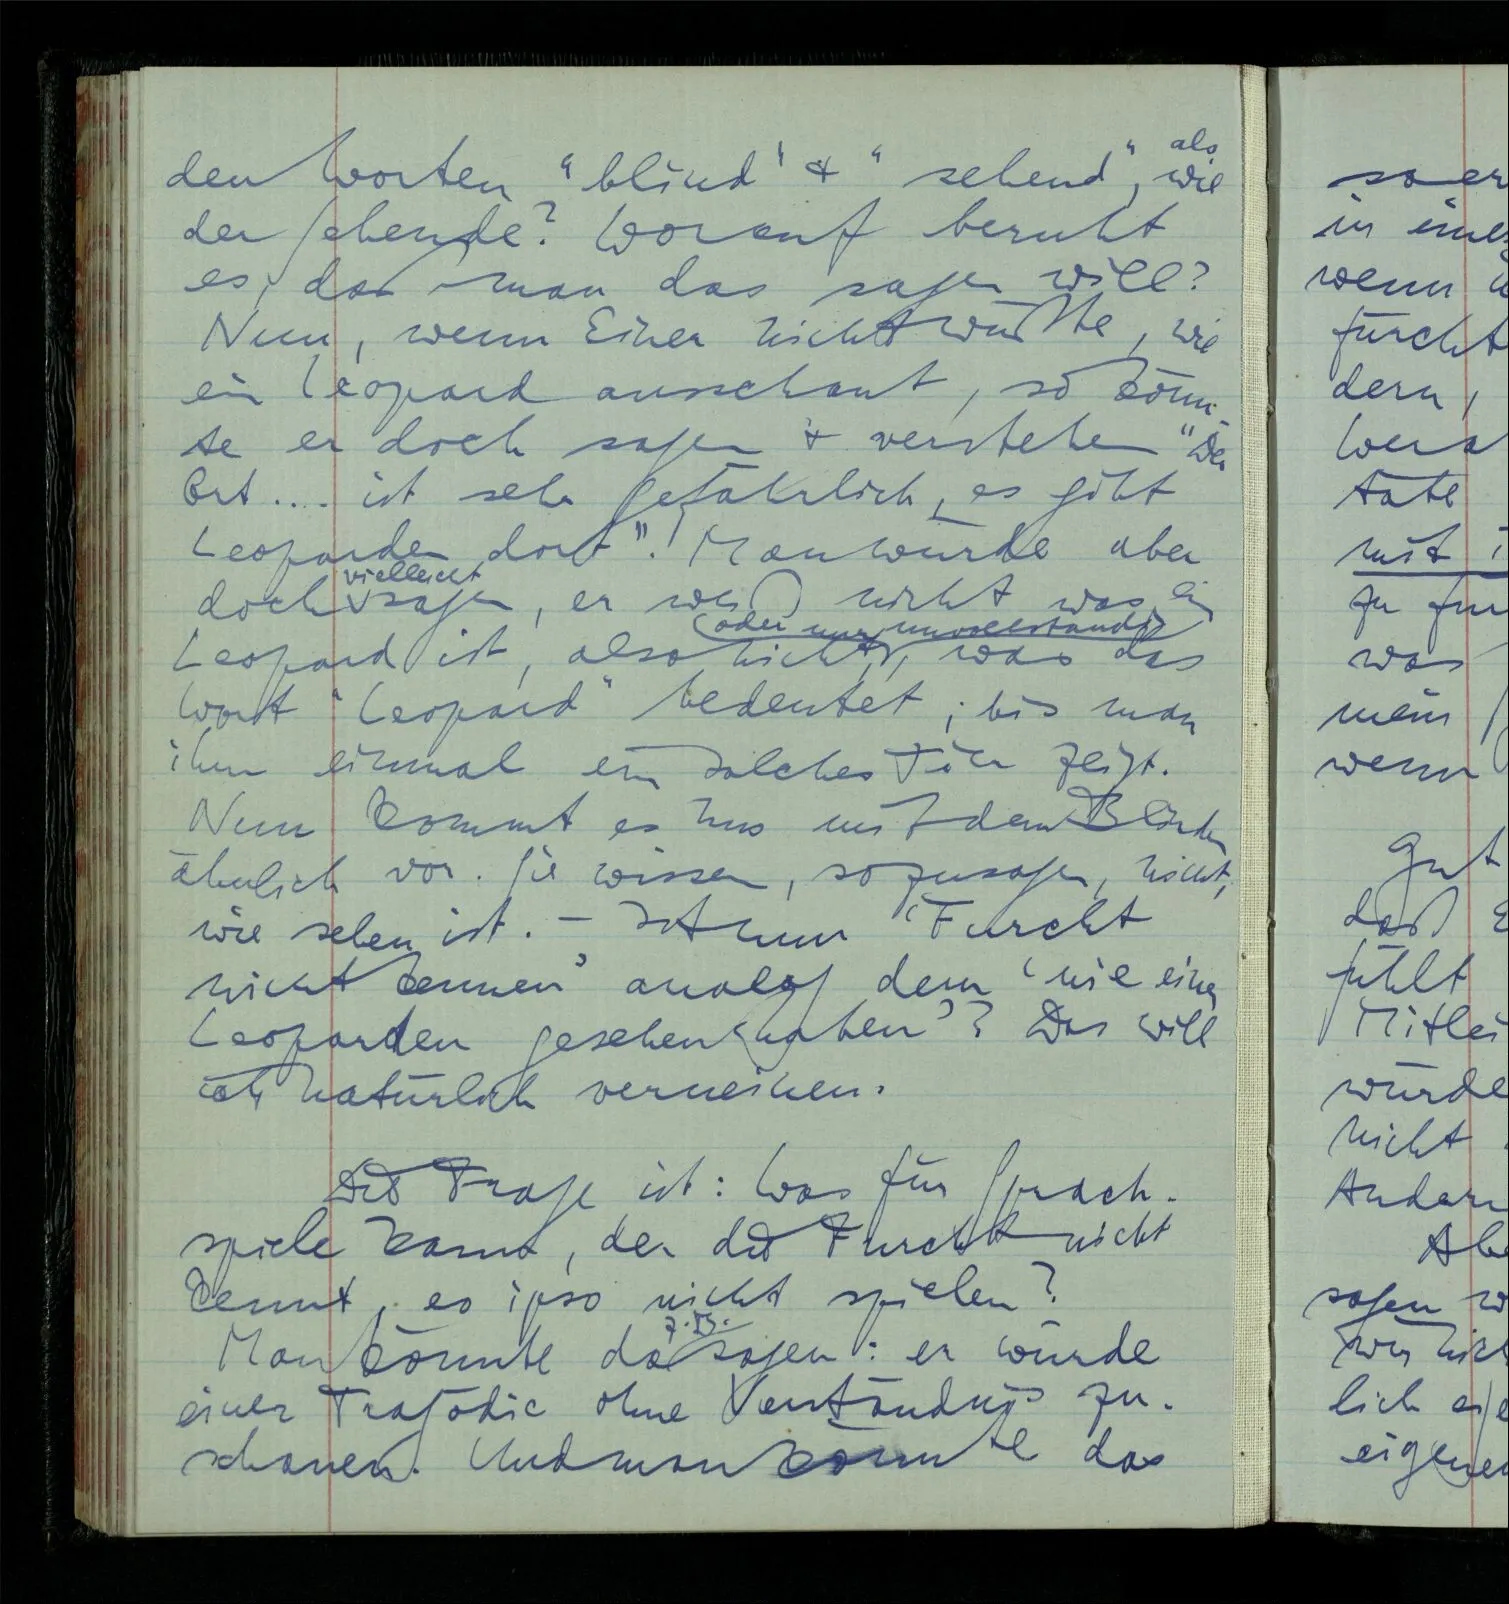 den Worten "blind" & "sehend", als wie
der Sehende? Worauf beruht
es, daß man das sagen will?
Nun, wenn Einer nicht wüßte, wie
ein Leopard ausschaut, so könn-
te er doch sagen & verstehen "Der
Ort .... ist sehr gefährlich, es gibt
Leoparden dort". Man würde aber
doch vielleicht sagen, er weiß nicht was ein
Leopard ist, also nicht (oder nur unvollständig), was das
Wort "Leopard" bedeutet, bis man
ihm einmal ein solches Tier zeigt.
Nun kommt es uns mit den Blinden
ähnlich vor. Sie wissen, sozusagen, nicht,
wie sehen ist. – Ist nun 'Furcht
nicht kennen' analog dem 'nie einen
Leoparden gesehen haben'? Das will
ich natürlich verneinen.
Die Frage ist: Was für Sprach-
spiele kann, der die Furcht nicht
kennt, eo ipso nicht spielen?
Man könnte da z.B. sagen: er würde
einer Tragödie ohne Verständnis zu-
schauen. Und man könnte das
so er
in eine
wenn
fürcht
dern,
täte
mit
zu für
was
mein
wenn
Gut
daß
fühlt
Mitlei
würde
nicht
Andern
Ab
sagen w
lich
eigenen